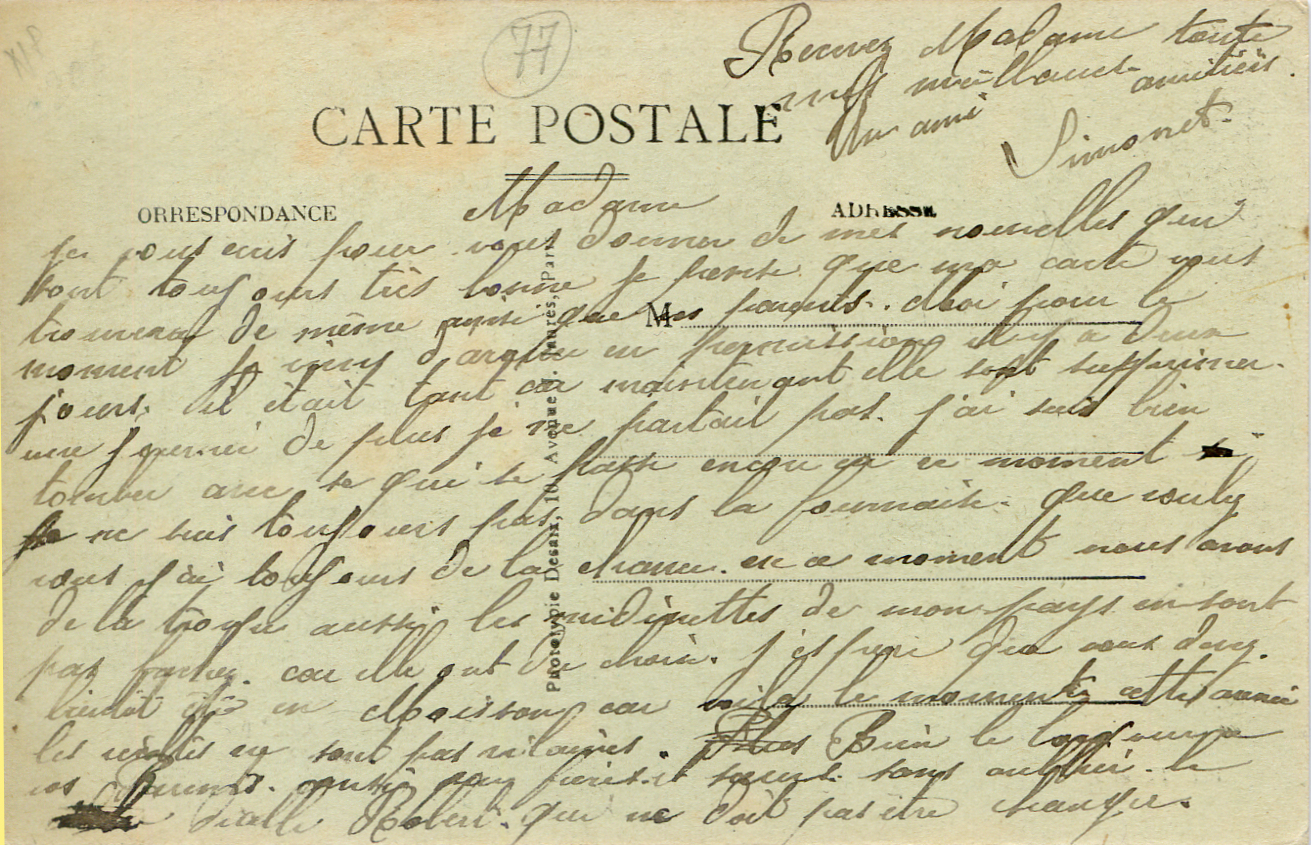 77
Recevez Madame toute
mes meilleures amitiés.
Un ami
Simonet.
CARTE POSTALE
ORRESPONDANCE
ADRESSE
Madame
je vous ecris pour vous donner de mes nouvelles qui
sont toujours très bonne je pense que ma carte vous
trouvera de même ainsi que vos parents. Moi pour le
moment je viens d'arriver en permission il y a deux
jours. il était tant car maintenant elle sont supprimer.
une journei de plus je ne partait pas. j'ai suis bien
tomber avec se qui se passe encore en ce moment
je ne suis toujours pas dans la fournaise. que voulez
vous j'ai toujours de la chance. en ce moment nous avons
de la troupe aussi les midinettes de mon pays en sont
pas facher. car elle ont du choix. J'espère que vous devez
bientôt être en Moisson car voila le moment cette année
les récoltes en sont pas vilaines. Plus Rien le bonjour a
vos Parents. aussi son frère et soeurs sans oublier. le
vieille Robert. qui ne doit pas être changer.
M
Phototypie Desaix, 10, Avenue J. Jaurès, Paris